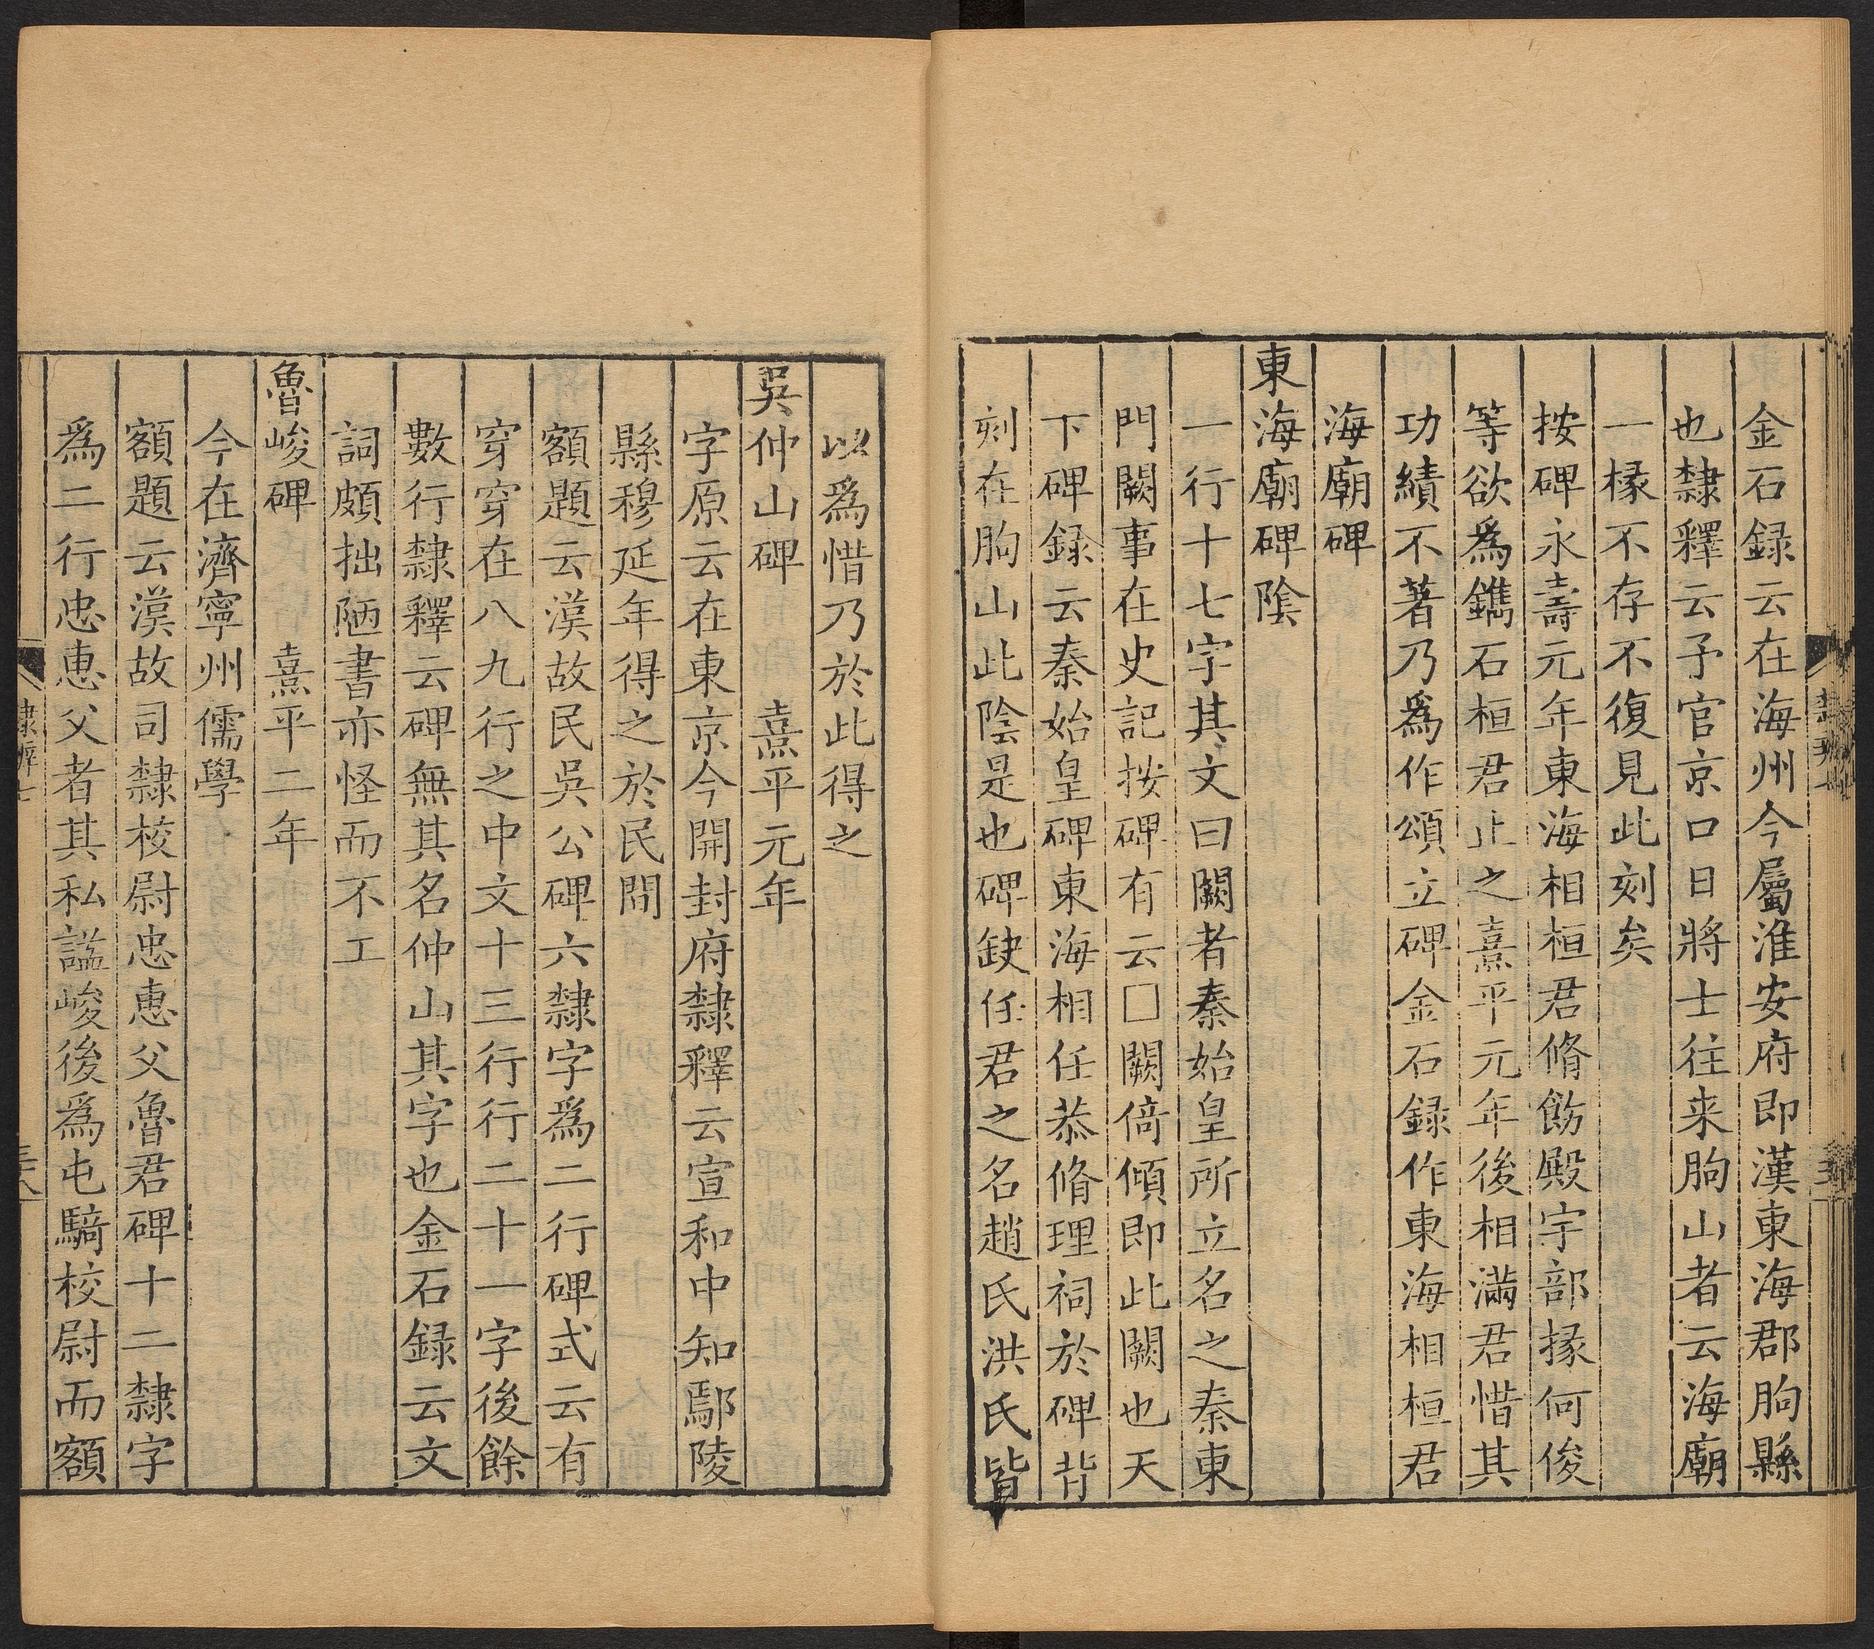 金石録云在海州今屬淮安府即漢東海郡朐縣
也隸釋云予官京口日將士往来朐山者云海廟
一椽不存不復見此刻矣
按碑永壽元年東海相桓君脩飭殿宇部掾何俊
等欲爲鐫石桓君止之熹平元年後相滿君惜其
功績不著乃爲作頌立碑金石録作東海相桓君
海廟碑
東海廟碑陰
一行十七字其文曰闕者秦始皇所立名之秦東
門闕事在史記按碑有云□闕倚傾即此闕也天
下碑録云秦始皇碑東海相任恭脩理祠於碑背
刻在朐山此陰是也碑缺任君之名趙氏洪氏皆
以爲惜乃於此得之
吳仲山碑　熹平元年
字原云在東京今開封府隸釋云宣和中知鄢陵
縣穆延年得之於民間
額題云漢故民吳公碑六隸字爲二行碑式云有
穿穿在八九行之中文十三行行二十一字後餘
數行隸釋云碑無其名仲山其字也金石録云文
詞頗拙陋書亦怪而不工
魯峻碑　熹平二年
今在濟寧州儒學
額題云漢故司隸校尉忠惠父魯君碑十二隸字
爲二行忠惠父者其私謚峻後爲屯騎校尉而額
隸辨七
三八